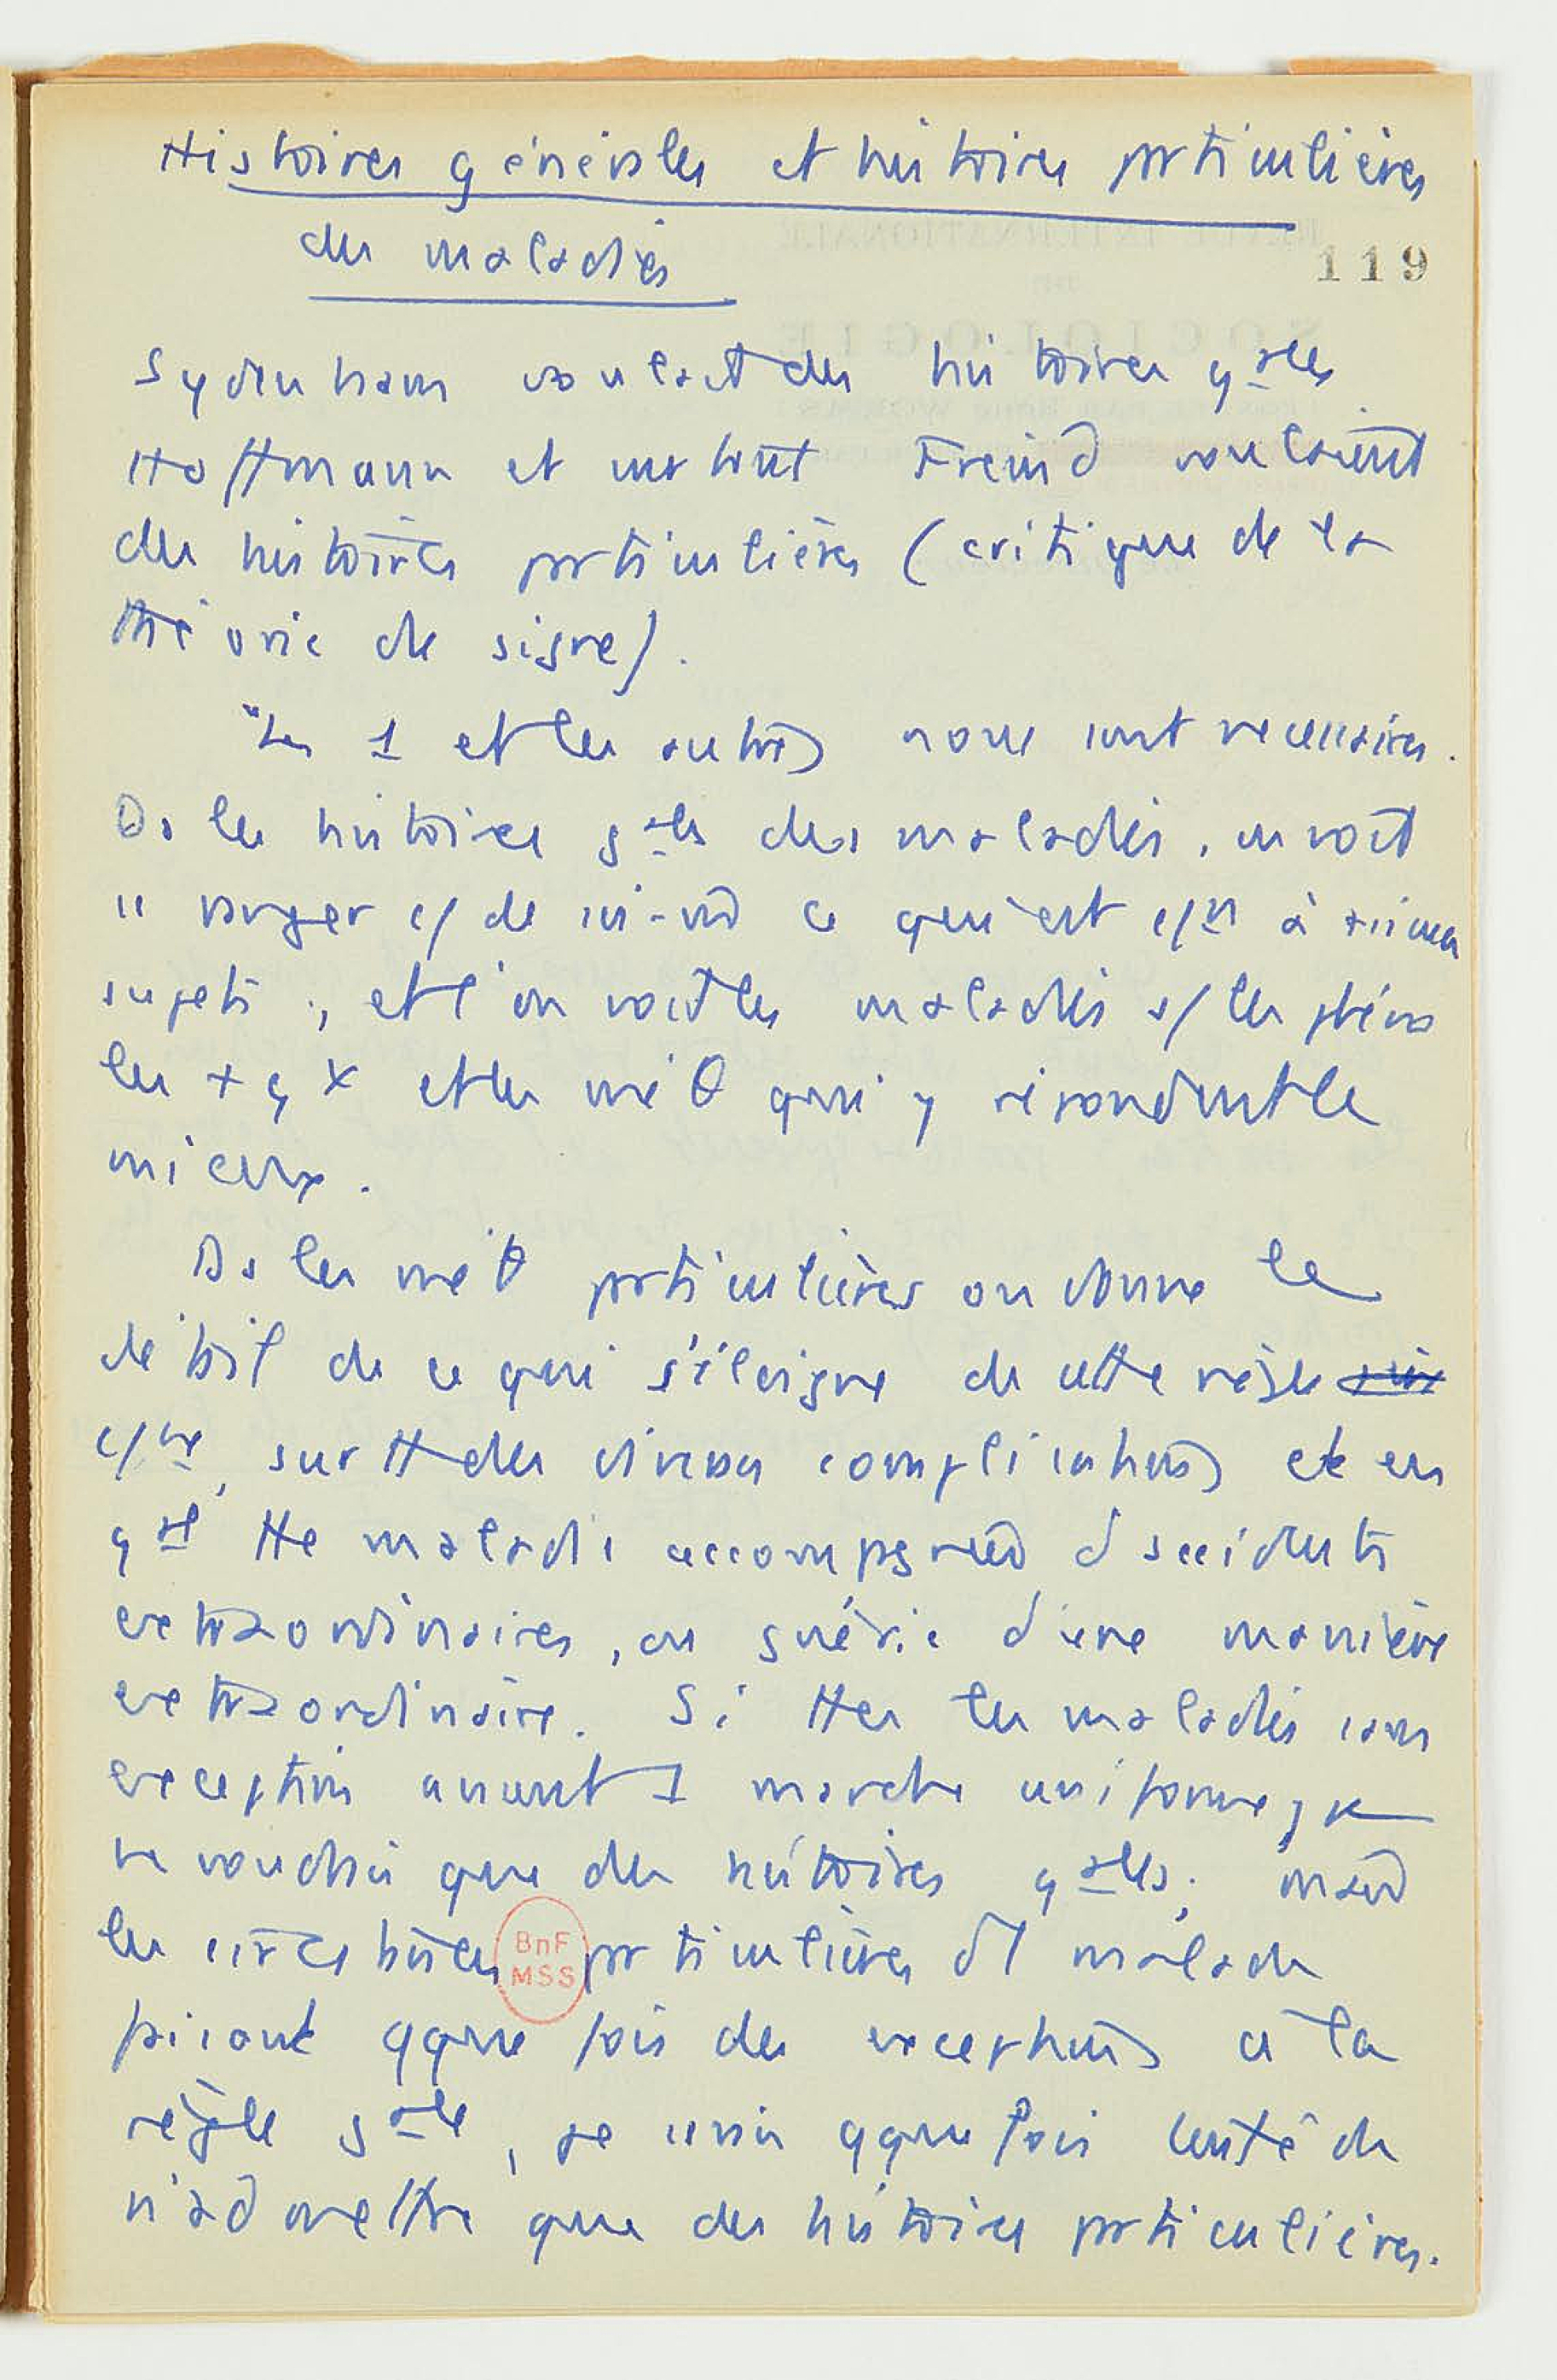 Histoires générales et histoires prticulières
des maladies
119
Sydenham voulait des histoires gales
Hoffmann et surtout Freind voulaient
des histoires prticulières (critique de la
théorie de signe).
"Les 1 et les autres nous sont nécessaires.
Ds les histoires gales des maladies, on voit
se ranger c/ de soi-m̂ ce qui est c/n à
sujets ; et l'on voit les maladies s/ les phéno
les + gx et les méθ qui y répondent le
mieux.
Ds les méθ prticulières on donne le
détail de ce qui s'éloigne de cette règle
c/ne, surtt des diverses complications et en
gal tte maladie accompagnée d'accidents
extraordinaires, ou guérie d'une manière
extraordinaire. Si ttes les maladies sans
exception avaient 1 marche uniforme, je
ne voudrais que des histoires gales;
les circstances prticulières d'1 malade
faisant qque fois des exceptions à la
règle gale, je serais qque fois tenté de
n'admettre que des histoires prticulières.
BnF
MSS